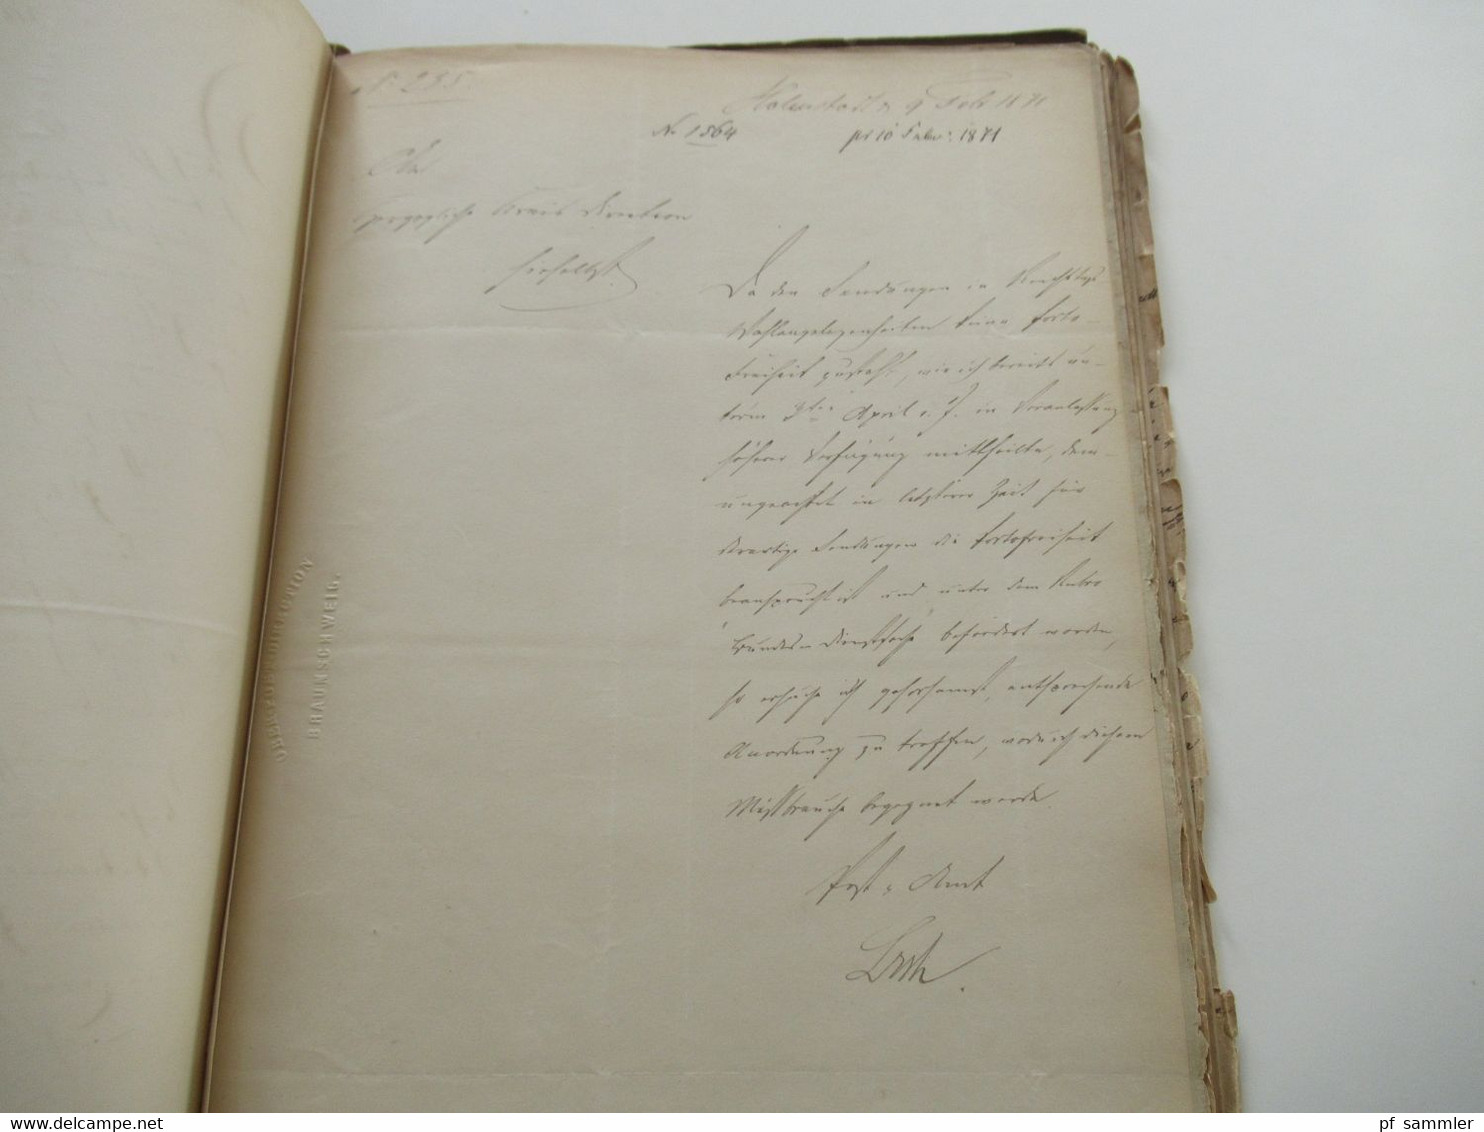 No 235.
Helmstedt 9 Febr 1871
No 1564
pr 10 Febr: 1871
An
Herzogliche Kreis Direction
hieselbst.
Da den Sendungen in Reichstags
Wahlangelegenheiten keine Porto-
Freiheit zusteht, wie ich bereits un-
term April v. J. in Veranlassung
höherer Verfügung mittheilte, dem-
ungeachtet in letzterer Zeit für
derartige Sendungen die Portofreiheit
beansprucht ist und unter dem Rubro
"Bundes-Dienstsache" befördert worden,
so ersuche ich gehorsamst, entsprechende
Anordnung zu treffen, wodurch diesem
Mißbrauche begegnet werde.
Post-Amt
OBERPOSTDIRECTION
BRAUNSCHWEIG.
www.delcampe.net
pf_sammler